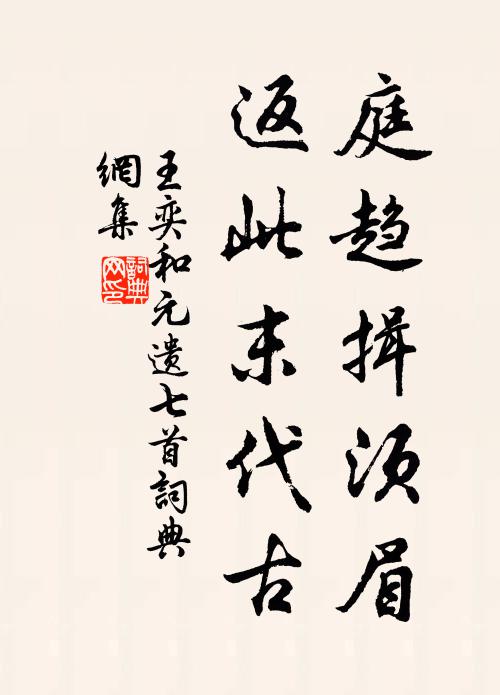 庭趋揖须眉
返此末代古
王奕和元遗七首詞典
網集
詞典
网印